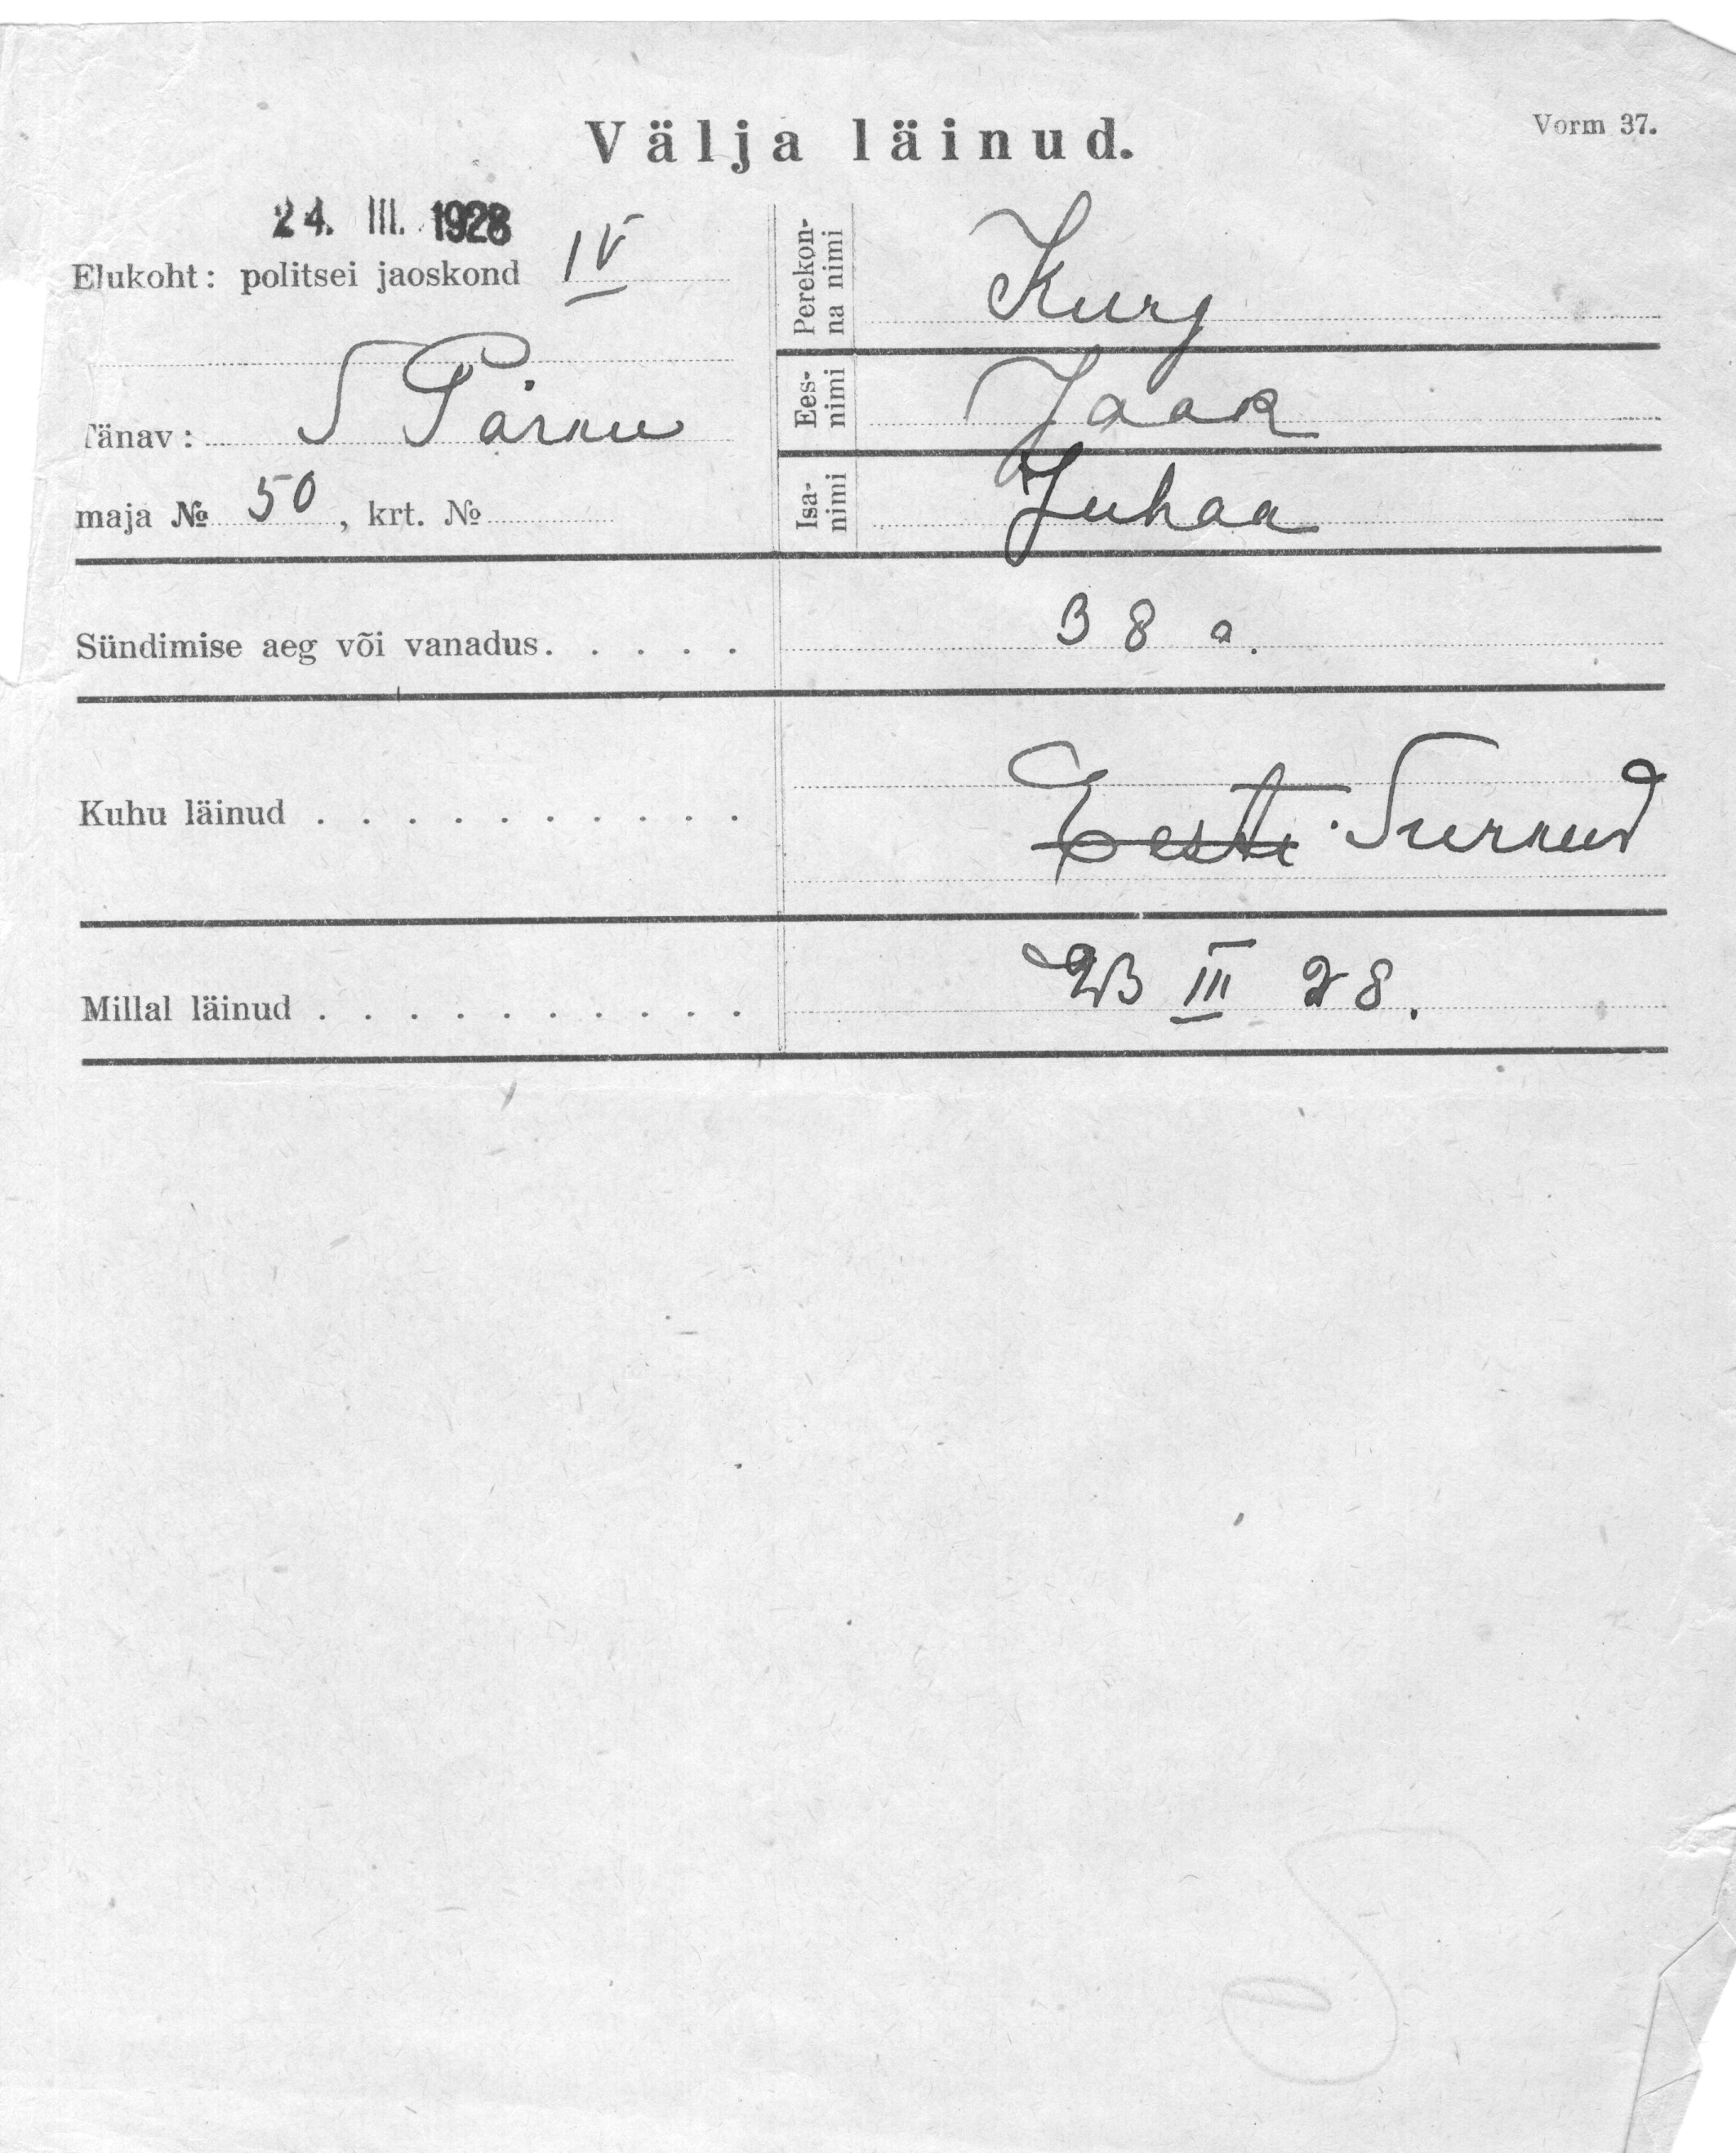 Välja läinud.
Vorm 37.
24. III. 1928
Elukoht: politsei jaoskond IV
Tänav: S Pärnu
maja № 50, krt. №
Perekon-
na nimi
Kurg
Ees-
nimi
Jaak
Isa-
nimi
Juhan
Sündimise aeg või vanadus. . . . . 38 a.
Kuhu läinud . . . . . . . . . . Eesti. Surnud
Millal läinud . . . . . . . . . . 23 III 28.
S